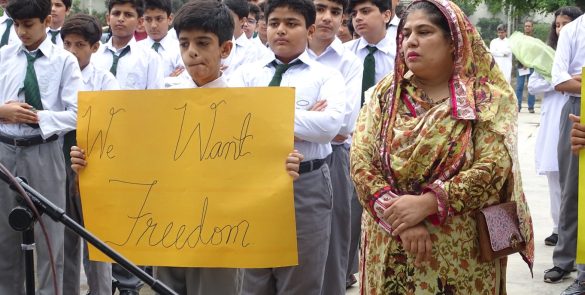 We Want
Freedom